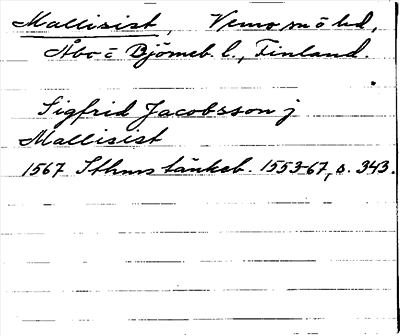 Mallisist, Vemo sn o hd,
Åbo = Björneb. l., Finland.
Sigfrid Jacobsson j
Mallisist
1567 Sthms tänkeb. 1553-67, s. 343.